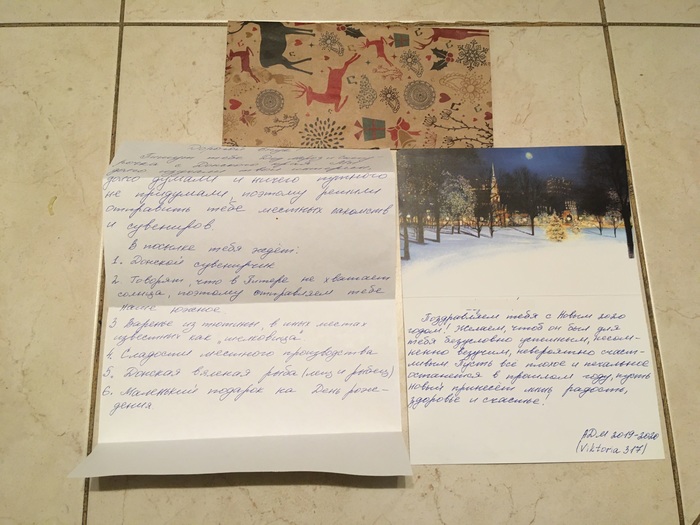 долго думали и ничего путного
не придумали, поэтому решили
отправить тебе местных лакомств
и сувениров.
В посылке тебя ждёт:
1. Донской сувенирчик
2. Говорят, что в Питере не хватает
солнца, поэтому отправляем тебе
наше южное.
3 Варенье из тютины, в иных местах
известных как "шелковица
4. Сладости местного производства
5. Донская вяленая рыба (лещ и рыбец)
6. Маленький подарок на День рож-
дения
Поздравляем тебя с Новым 2020
годом! Желаем, чтоб он был для
тебя безусловно успешным, несом-
ненно везучим, невероятно счаст-
ливым. Пусть все плохое и печальное
останется в прошлом году, пусть
новый принесёт мир, радость,
здоровье и счастье!
АДМ 2019-2020
(Viktoria 317)